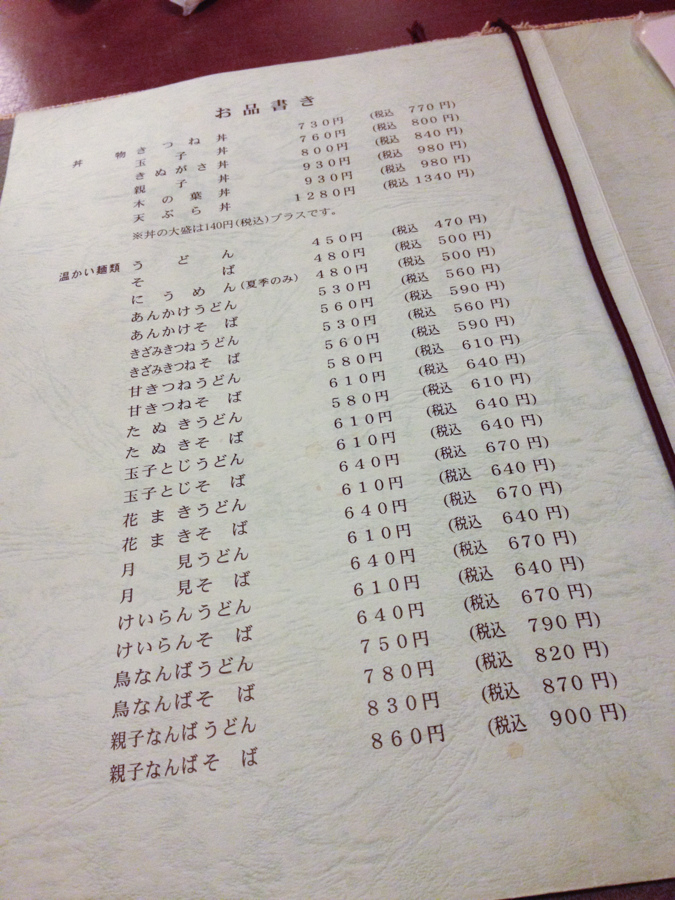 お品書き
丼物 きつね丼 730円 (税込 770円)
玉子丼 760円 (税込 800円)
きぬがさ丼 800円 (税込 840円)
親子丼 930円 (税込 980円)
木の葉丼 930円 (税込 980円)
天ぷら丼 1280円 (税込 1340円)
※丼の大盛は140円(税込)プラスです。
温かい麺類 うどん 450円 (税込 470円)
そば 480円 (税込 500円)
にうめん(夏季のみ) 480円 (税込 500円)
あんかけうどん 530円 (税込 560円)
あんかけそば 560円 (税込 590円)
きざみきつねうどん 530円 (税込 560円)
きざみきつねそば 560円 (税込 590円)
甘きつねうどん 580円 (税込 610円)
甘きつねそば 610円 (税込 640円)
たぬきうどん 580円 (税込 610円)
たぬきそば 610円 (税込 640円)
玉子とじうどん 610円 (税込 640円)
玉子とじそば 640円 (税込 670円)
花まきうどん 610円 (税込 640円)
花まきそば 640円 (税込 670円)
月見うどん 610円 (税込 640円)
月見そば 640円 (税込 670円)
けいらんうどん 610円 (税込 640円)
けいらんそば 640円 (税込 670円)
鳥なんばうどん 750円 (税込 790円)
鳥なんばそば 780円 (税込 820円)
親子なんばうどん 830円 (税込 870円)
親子なんばそば 860円 (税込 900円)